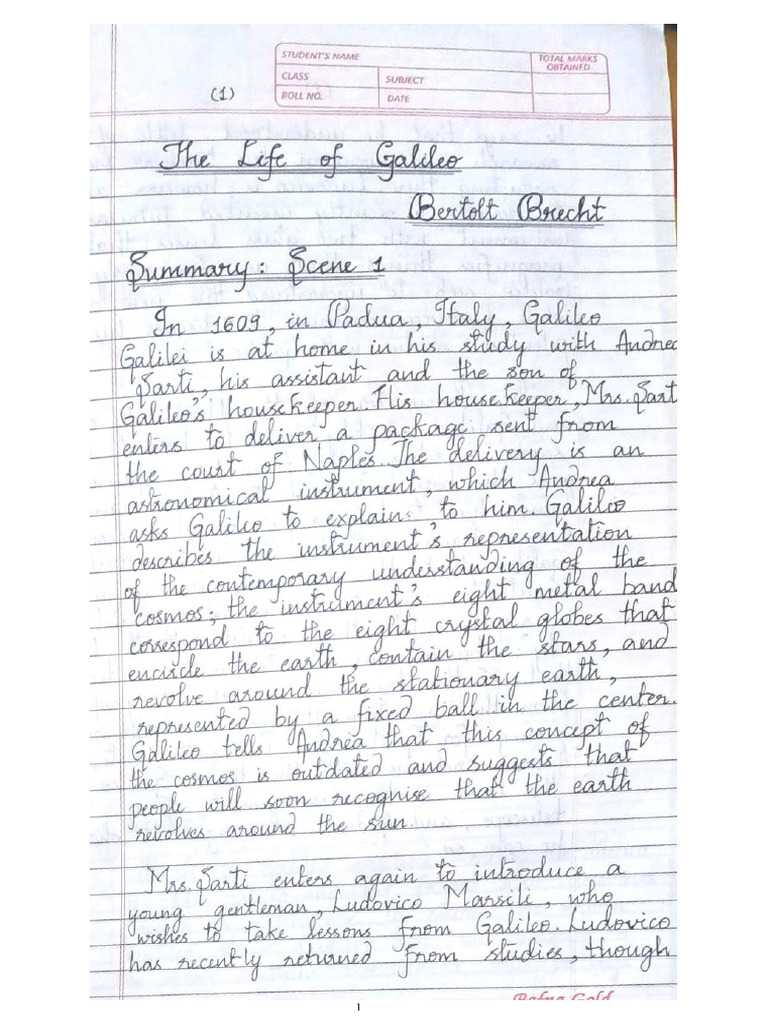 STUDENT'S NAME
TOTAL MARKS OBTAINED
CLASS
SUBJECT
ROLL NO.
DATE
(1)
The Life of Galileo
Bertolt Brecht
Summary: Scene 1
In 1609, in Padua, Italy, Galileo
Galilei is at home in his study with Andrea
Sarti, his assistant and the son of
Galileo's housekeeper. His housekeeper, Mrs. Sart
enters to deliver a package sent from
the court of Naples. The delivery is an
astronomical instrument, which Andrea
asks Galileo to explain to him. Galileo
describes the instrument's representation
of the contemporary understanding of the
cosmos; the instrument's eight metal band
correspond to the eight crystal globes that
encircle the earth, contain the stars, and
revolve around the stationary earth,
represented by a fixed ball in the center.
Galileo tells Andrea that this concept of
the cosmos is outdated and suggests that
people will soon recognise that the earth
revolves around the sun.
Mrs. Sarti enters again to introduce a
young gentleman, Ludovico Marsili, who
wishes to take lessons from Galileo. Ludovico
has recently returned from studies, though
Bafna Gold
1